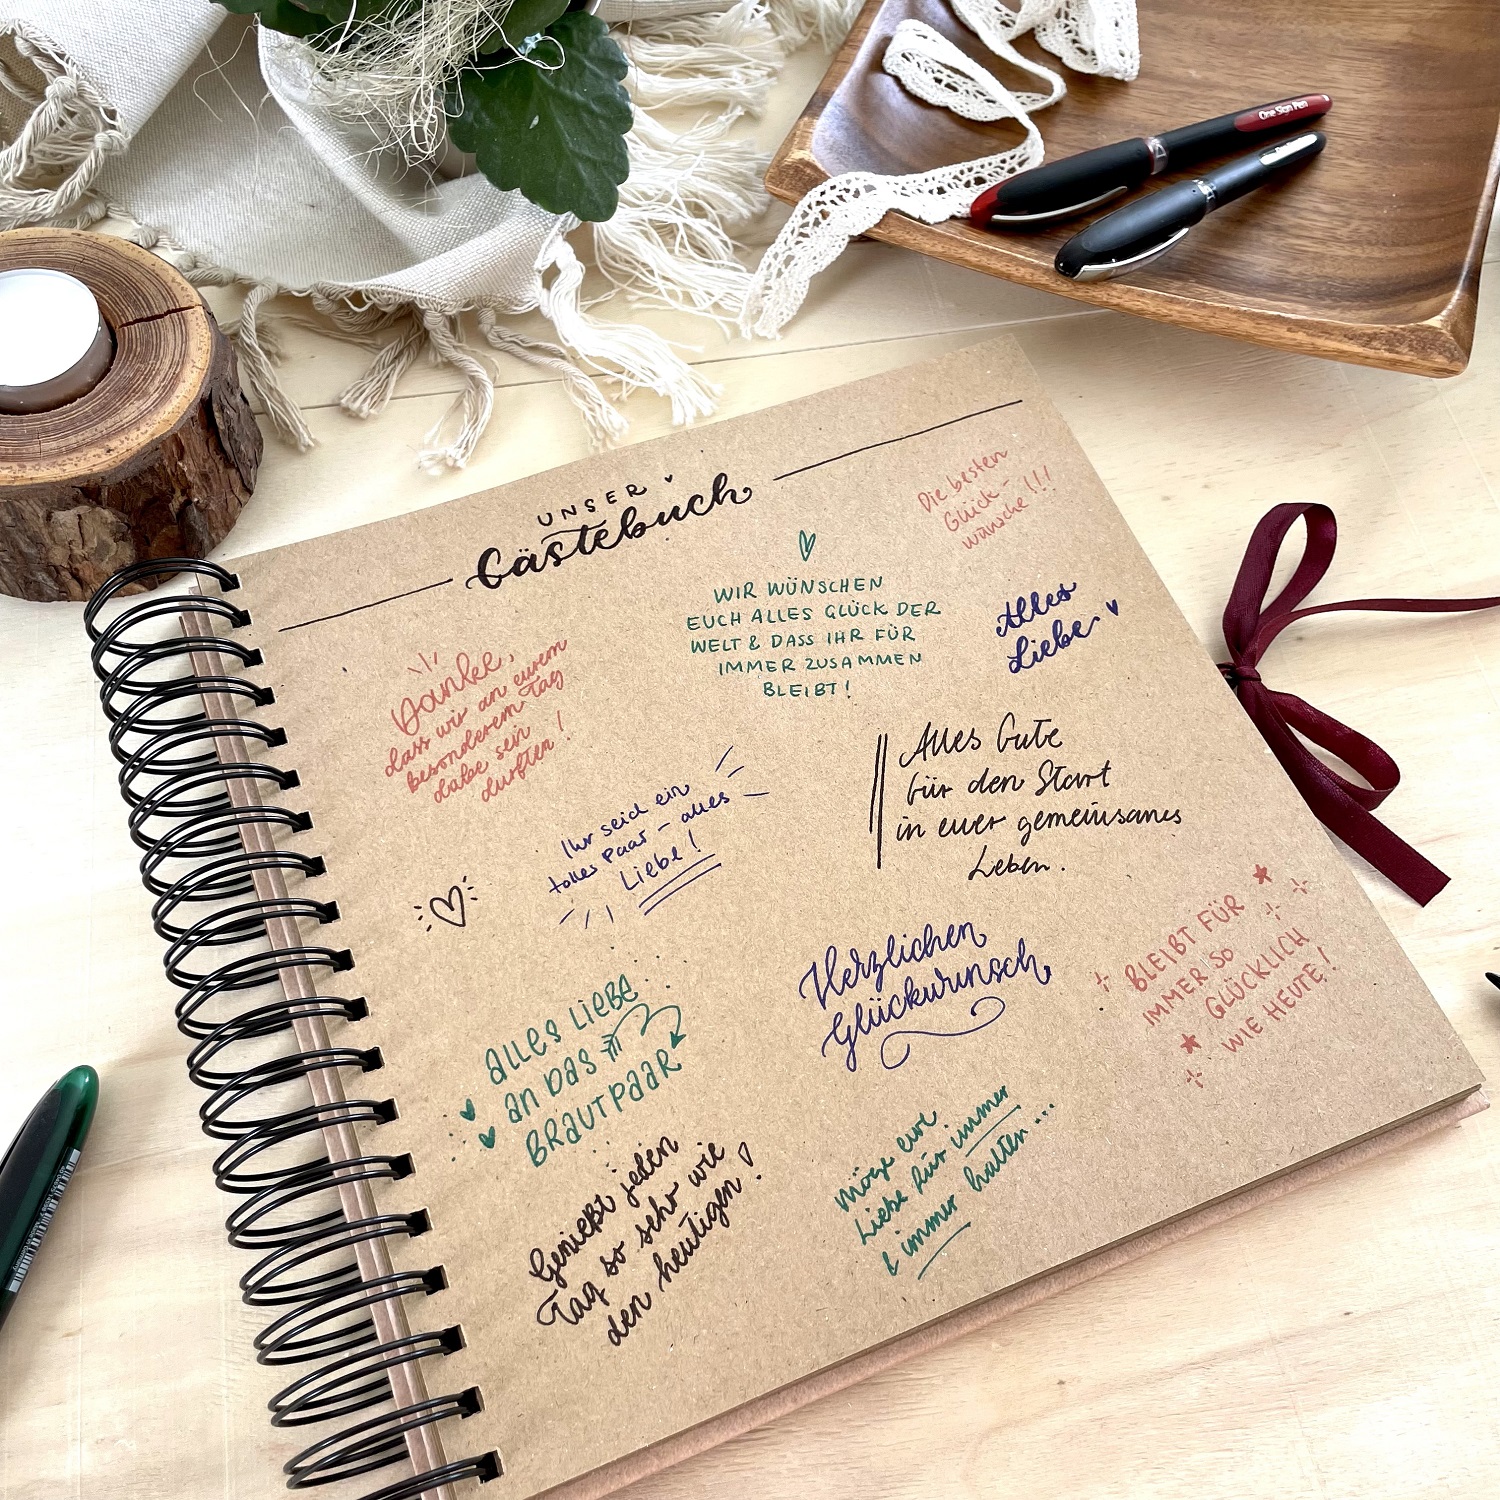 One Sign Pen
UNSER
Gästebuch
Die besten
Glück-
wünsche!!!
WIR WÜNSCHEN
EUCH ALLES GLÜCK DER
WELT & DASS IHR FÜR
IMMER ZUSAMMEN
BLEIBT!
Alles
Liebe
Danke,
dass wir an eurem
besonderem Tag
dabe sein
durften!
Alles Gute
für den Start
in euer gemeinsames
Leben.
Ihr seid ein
tolles Paar - alles
Liebe!
BLEIBT FÜR
IMMER SO
GLÜCKLICH
WIE HEUTE!
Herzlichen
Glückwunsch
ALLES LIEBE
AN DAS
BRAUTPAAR
Genießt jeden
Tag so sehr wie
den heutigen!
Möge eure
Liebe für immer
& immer halten...